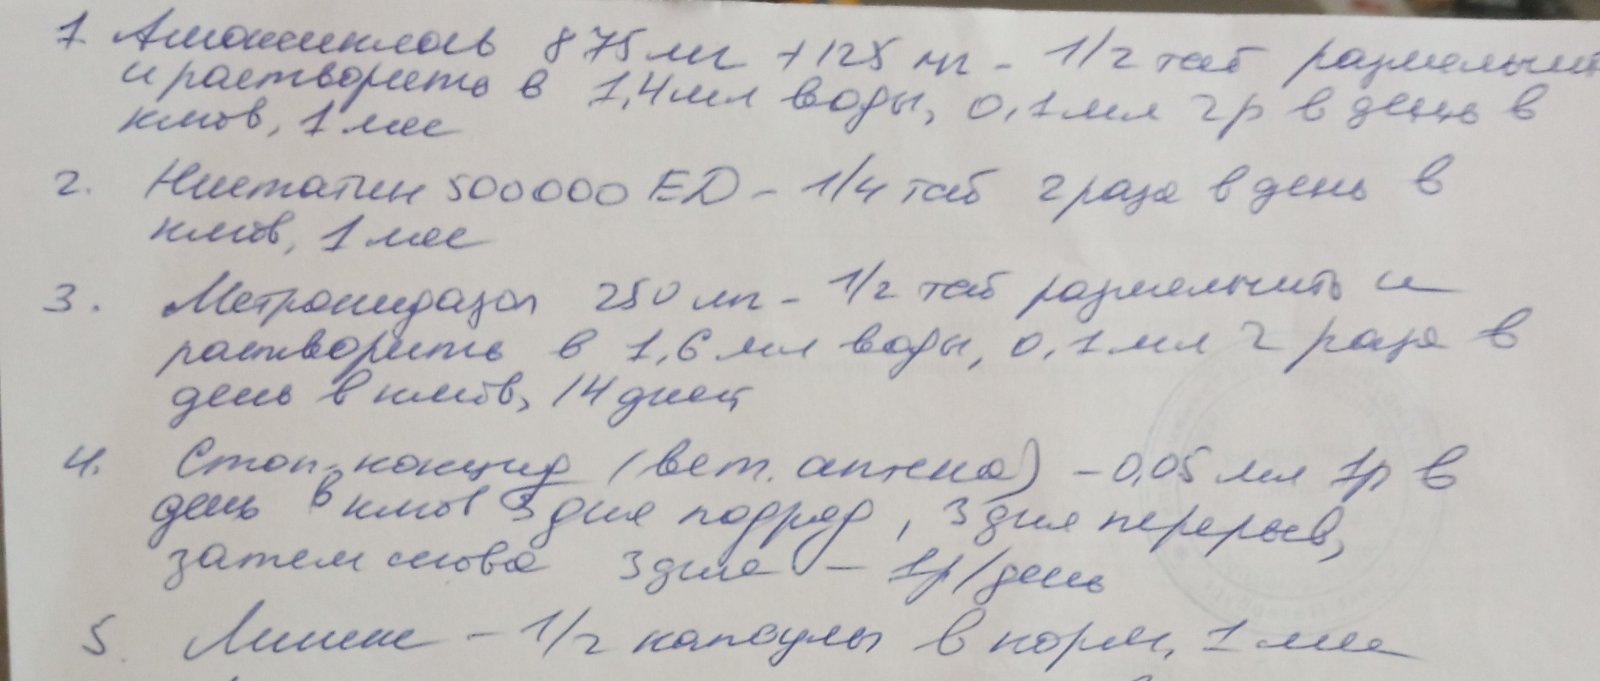 1. Амоксиклав 875 мг + 125 мг - 1/2 таб размельчить
и растворить в 1,4 мл воды, 0,1 мл 2р в день в
клюв, 1 мес
2. Нистатин 500000 ЕД - 1/4 таб 2 раза в день в
клюв, 1 мес
3. Метронидазол 250 мг - 1/2 таб размельчить и
растворить в 1,6 мл воды, 0,1 мл 2 раза в
день в клюв, 14 дней
4. Стоп-кокцид (вет. аптека) - 0,05 мл 1р в
день в клюв 3 дня подряд, 3 дня перерыв,
затем снова 3 дня - 1р/день
5. Линекс - 1/2 капсулы в корм, 1 мес